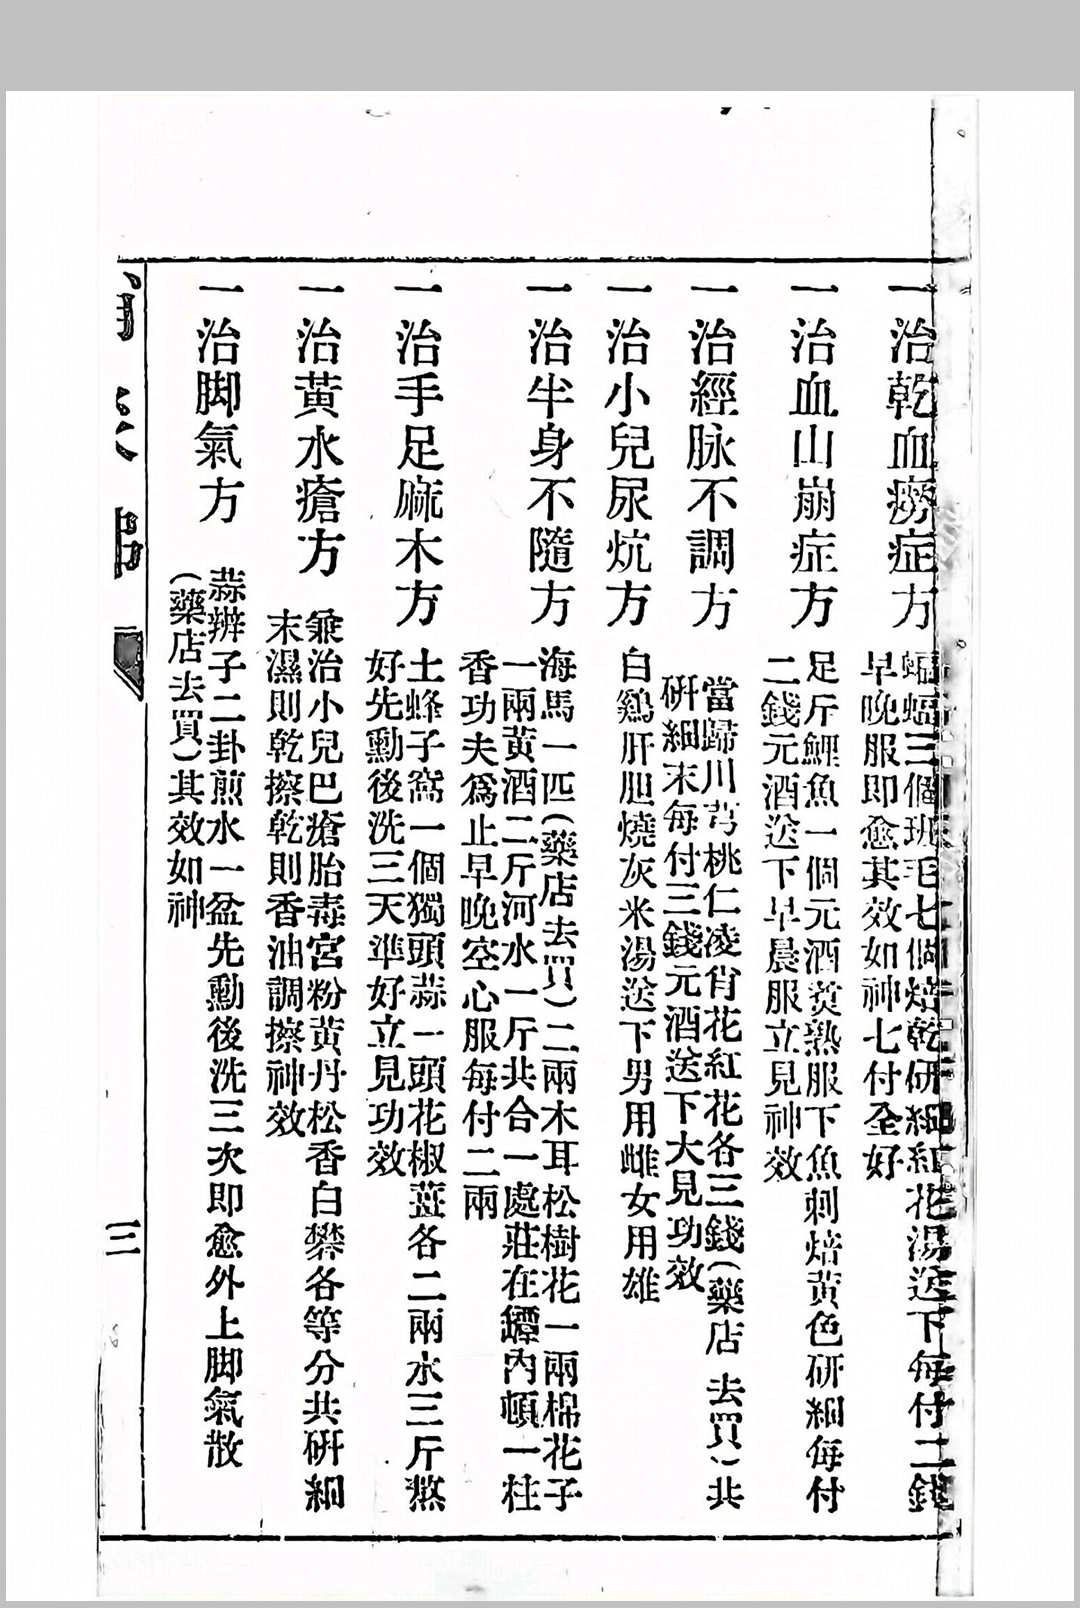 一治乾血癆症方
蝙蝠三個班毛七個焙乾研細紅花湯送下每付二錢
早晚服即愈其效如神七付全好
一治血山崩症方
足斤鯉魚一個元酒煑熟服下魚刺焙黃色研細每付
二錢元酒送下早晨服立見神效
一治經脉不調方
當歸川芎桃仁凌肖花紅花各三錢(藥店去買)共
研細末每付三錢元酒送下大見功效
一治小兒尿炕方
白鷄肝胆燒灰米湯送下男用雌女用雄
一治半身不隨方
海馬一匹(藥店去買)二兩木耳松樹花一兩棉花子
一兩黃酒二斤河水一斤共合一處莊在罈內頓一柱
香功夫為止早晚空心服每付二兩
一治手足麻木方
土蜂子窩一個獨頭蒜一頭花椒薑各二兩水三斤熬
好先勳後洗三天準好立見功效
一治黃水瘡方
兼治小兒巴瘡胎毒宮粉黃丹松香白礬各等分共研細
末濕則乾擦乾則香油調擦神效
一治脚氣方
蒜辨子二卦煎水一盆先勳後洗三次即愈外上脚氣散
(藥店去買)其效如神
三